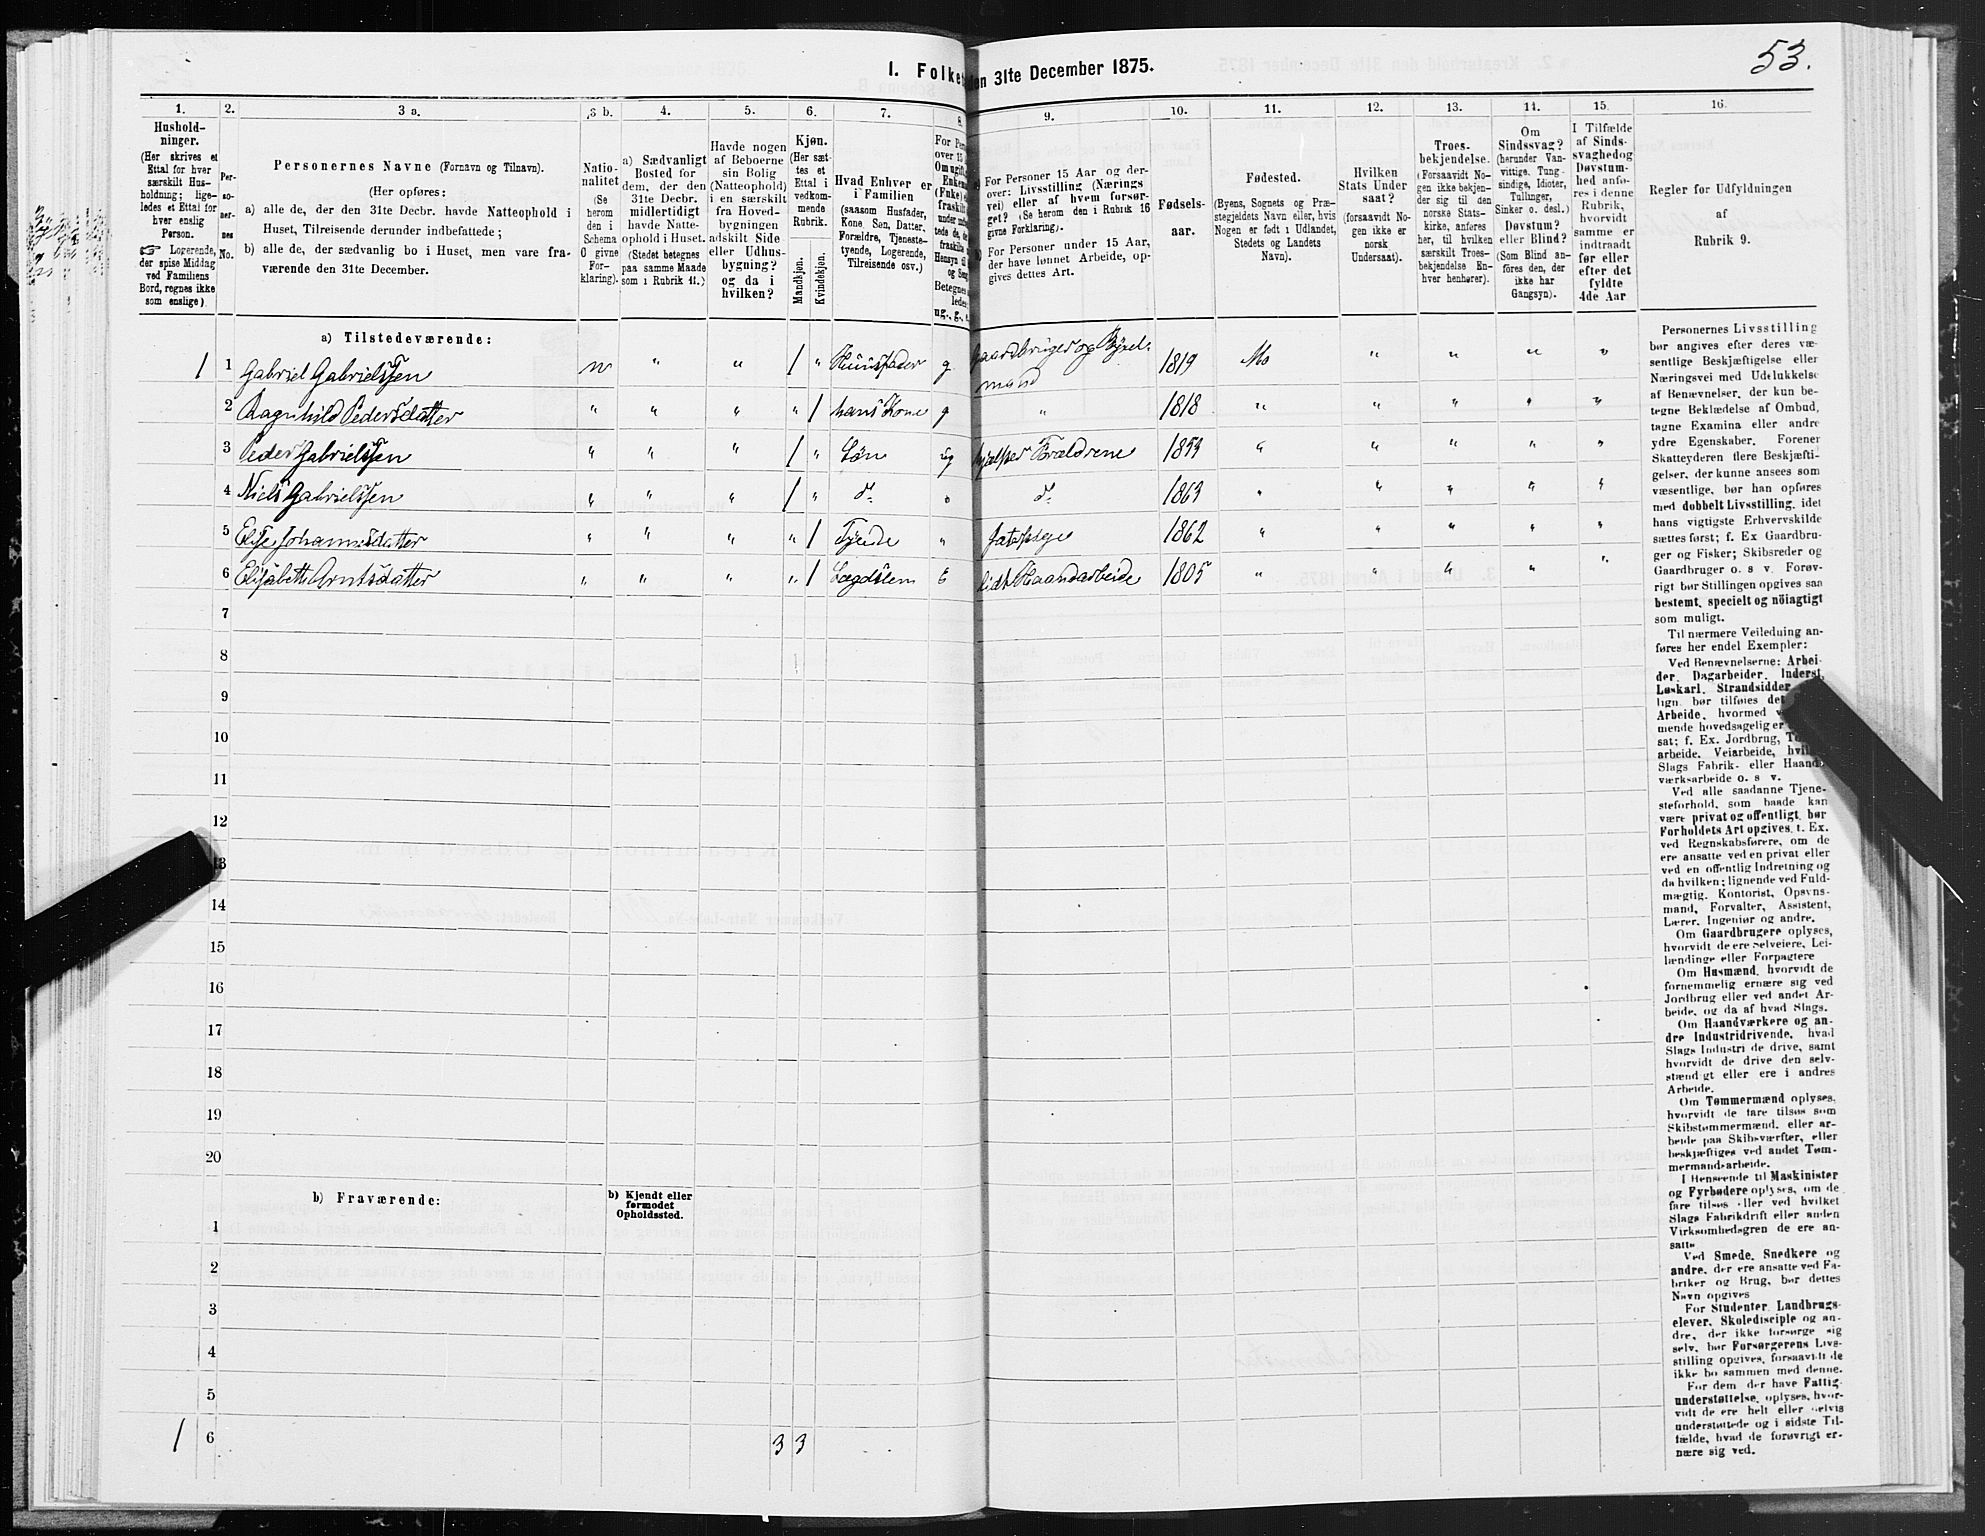 53.
I. Folke
den 31te December 1875.
1.
2.
3 a.
3 b.
4.
5.
6.
7.
8.
9.
10.
11.
12.
13.
14.
15.
16.
Hushold-
ninger.
(Her skrives et
Ettal for hver
særskilt Hus-
holdning; lige-
ledes et Ettal for
hver enslig
Person.
☞ Logerende,
der spise Middag
ved Familiens
Bord, regnes ikke
som enslige).
Per-
so-
ner-
nes
No.
Personernes Navne (Fornavn og Tilnavn).
(Her opføres:
a) alle de, der den 31te Decbr. havde Natteophold i
Huset, Tilreisende derunder indbefattede;
b) alle de, der sædvanlig bo i Huset, men vare fra-
værende den 31te December.
Natio-
nalitet
(Se
herom
den i
Schema
0 givne
For-
klaring).
a) Sædvanligt
Bosted for
dem, der den
31te Decbr.
midlertidigt
havde Natte-
ophold i Huset.
(Stedet betegnes
paa samme Maade
som i Rubrik 11.)
Havde nogen
af Beboerne
sin Bolig
(Natteophold)
i en særskilt
fra Hoved-
bygningen
adskilt Side
eller Udhus-
bygning?
og da i
hvilken?
Kjøn.
(Her sæt-
tes et
Ettal i
vedkom-
mende
Rubrik.
Mandkjøn.
Kvindekjøn.
Hvad Enhver er
i Familien
(saasom Husfader,
Kone, Søn, Datter,
Forældre, Tjeneste-
tyende, Logerende,
Tilreisende osv.)
For Personer 15 Aar og der-
over: Livsstilling (Nærings
vei) eller af hvem forsør-
get? (Se herom den i Rubrik 16
givne Forklaring).
For Personer under 15 Aar,
der have lønnet Arbeide, op-
gives dettes Art.
Fødsels-
aar.
Fødested.
(Byens, Sognets og Præ-
stegjeldets Navn eller, hvis
Nogen er født i Udlandet,
Stedets og Landets
Navn).
Hvilken
Stats Under
saat?
(forsaavidt No-
gen ikke er
norsk
Undersaat).
Troes-
bekjendelse.
(Forsaavidt No-
gen ikke bekjen-
der sig til den
norske Stats-
kirke, anføres
her, til hvilken
særskilt Troes-
bekjendelse En-
hver henhører).
Om
Sindssvag?
(herunder Van-
vittige, Tung-
sindige, Idioter,
Tullinger,
Sinker o. desl.)
Døvstum?
eller Blind?
(Som Blind an-
føres den, der
ikke har
Gangsyn).
I Tilfælde
af Sinds-
svaghed og
Døvstum-
hed anfø-
res i denne
Rubrik,
hvorvidt
samme er
indtraadt
før eller
efter det
fyldte
4de Aar
Regler for Udfyldningen
af
Rubrik 9.
a) Tilstedeværende:
1 1 Gabriel Gabrielssen n " " 1 " Huusfader g Gaardbruger og
mand 1819 Mo " " " "
2 Ragnhild Pedersdatter " " " " 1 hans Kone g " 1818 " " " " "
3 Peder Gabrielssen " " " 1 " Søn ug hjælper Forældrene 1853 " " " " "
4 Niels Gabrielssen " " " 1 " d: " d: 1863 " " " " "
5 Johannesdatter " " " " 1 Tjende " 1862 " " " " "
6 Elisabeth Arntsdatter " " " " 1 Lægdslem E lidt Haandarbeide 1805 " " " " "
7
8
9
10
11
12
13
14
15
16
17
18
19
20
b) Fraværende:
b) Kjendt eller
formodet
Opholdssted.
1
2
3
4
5
1 6 3 3
Personernes Livsstilling
bør angives efter deres væ-
sentlige Beskjæftigelse eller
Næringsvei med Udelukkelse
af Benævnelser, der kun be-
tegne Beklædelse af Ombud,
tagne Examina eller andre
ydre Egenskaber. Forener
Skatteyderen flere Beskjæfti-
gelser, der kunne ansees som
væsentlige, bør han opføres
med dobbelt Livsstilling, idet
hans vigtigste Erhvervskilde
sættes først; f. Ex Gaardbru-
ger og Fisker; Skibsreder og
Gaardbruger o. s v. Forøv-
rigt bør Stillingen opgives saa
bestemt, specielt og nöiagtigt
som muligt.
Til nærmere Veiledning an-
føres her endel Exempler:
Ved Benævnelserne: Arbei-
der, Dagarbeider, Inderst,
Løskarl, Strandsidder
lign. bør tilføies det
Arbeide, hvormed
mende hovedsagelig er
sat; f. Ex. Jordbrug,
arbeide, Veiarbeide,
Slags Fabrik- eller Haand-
værksarbeide o. s v.
Ved alle saadanne Tjene-
steforhold, som baade kan
være privat og offentligt, bør
Forholdets Art opgives, t. Ex.
ved Regnskabsførere, om de
ere ansatte ved en privat eller
ved en offentlig Indretning og
da hvilken; lignende ved Fuld-
mægtig, Kontorist, Opsyns-
mand, Forvalter, Assistent,
Lærer, Ingeniør og andre.
Om Gaardbrugere oplyses,
hvorvidt de ere Selveiere, Lei-
lændinge eller Forpagtere
Om Husmænd, hvorvidt de
fornemmelig ernære sig ved
Jordbrug eller ved andet Ar-
beide, og da af hvad Slags.
Om Haandværkere og an-
dre Industridrivende, hvad
Slags Industri de drive, samt
hvorvidt de drive den selv-
stændigt eller ere i andres
Arbeide.
Om Tømmermænd oplyses,
hvorvidt de fare tilsøs som
Skibstømmermænd, eller ar-
beide paa Skibsværfter, eller
beskjæftiges ved andet Tøm-
mermandsarbeide.
I Henseende til Maskinister
og Fyrbødere oplyses, om de
fare tilsøs eller ved hvilket
Slags Fabrikdrift eller anden
Virksomhedsgren de ere an-
satte
Ved Smede, Snedkere og
andre, der ere ansatte ved Fa-
briker og Brug, bør dettes
Navn opgives
For Studenter, Landbrugs-
elever, Skoledisciple og an-
dre, der ikke forsørge sig
selv, bør Forsørgerens Livs-
stilling opgives, forsaavidt de
ikke bo sammen med denne.
For dem, der have Fattig-
understøttelse, oplyses, hvor-
vidt de ere helt eller delvis
understøttede og i sidste Til-
fælde, hvad de forøvrigt er-
nære sig ved.